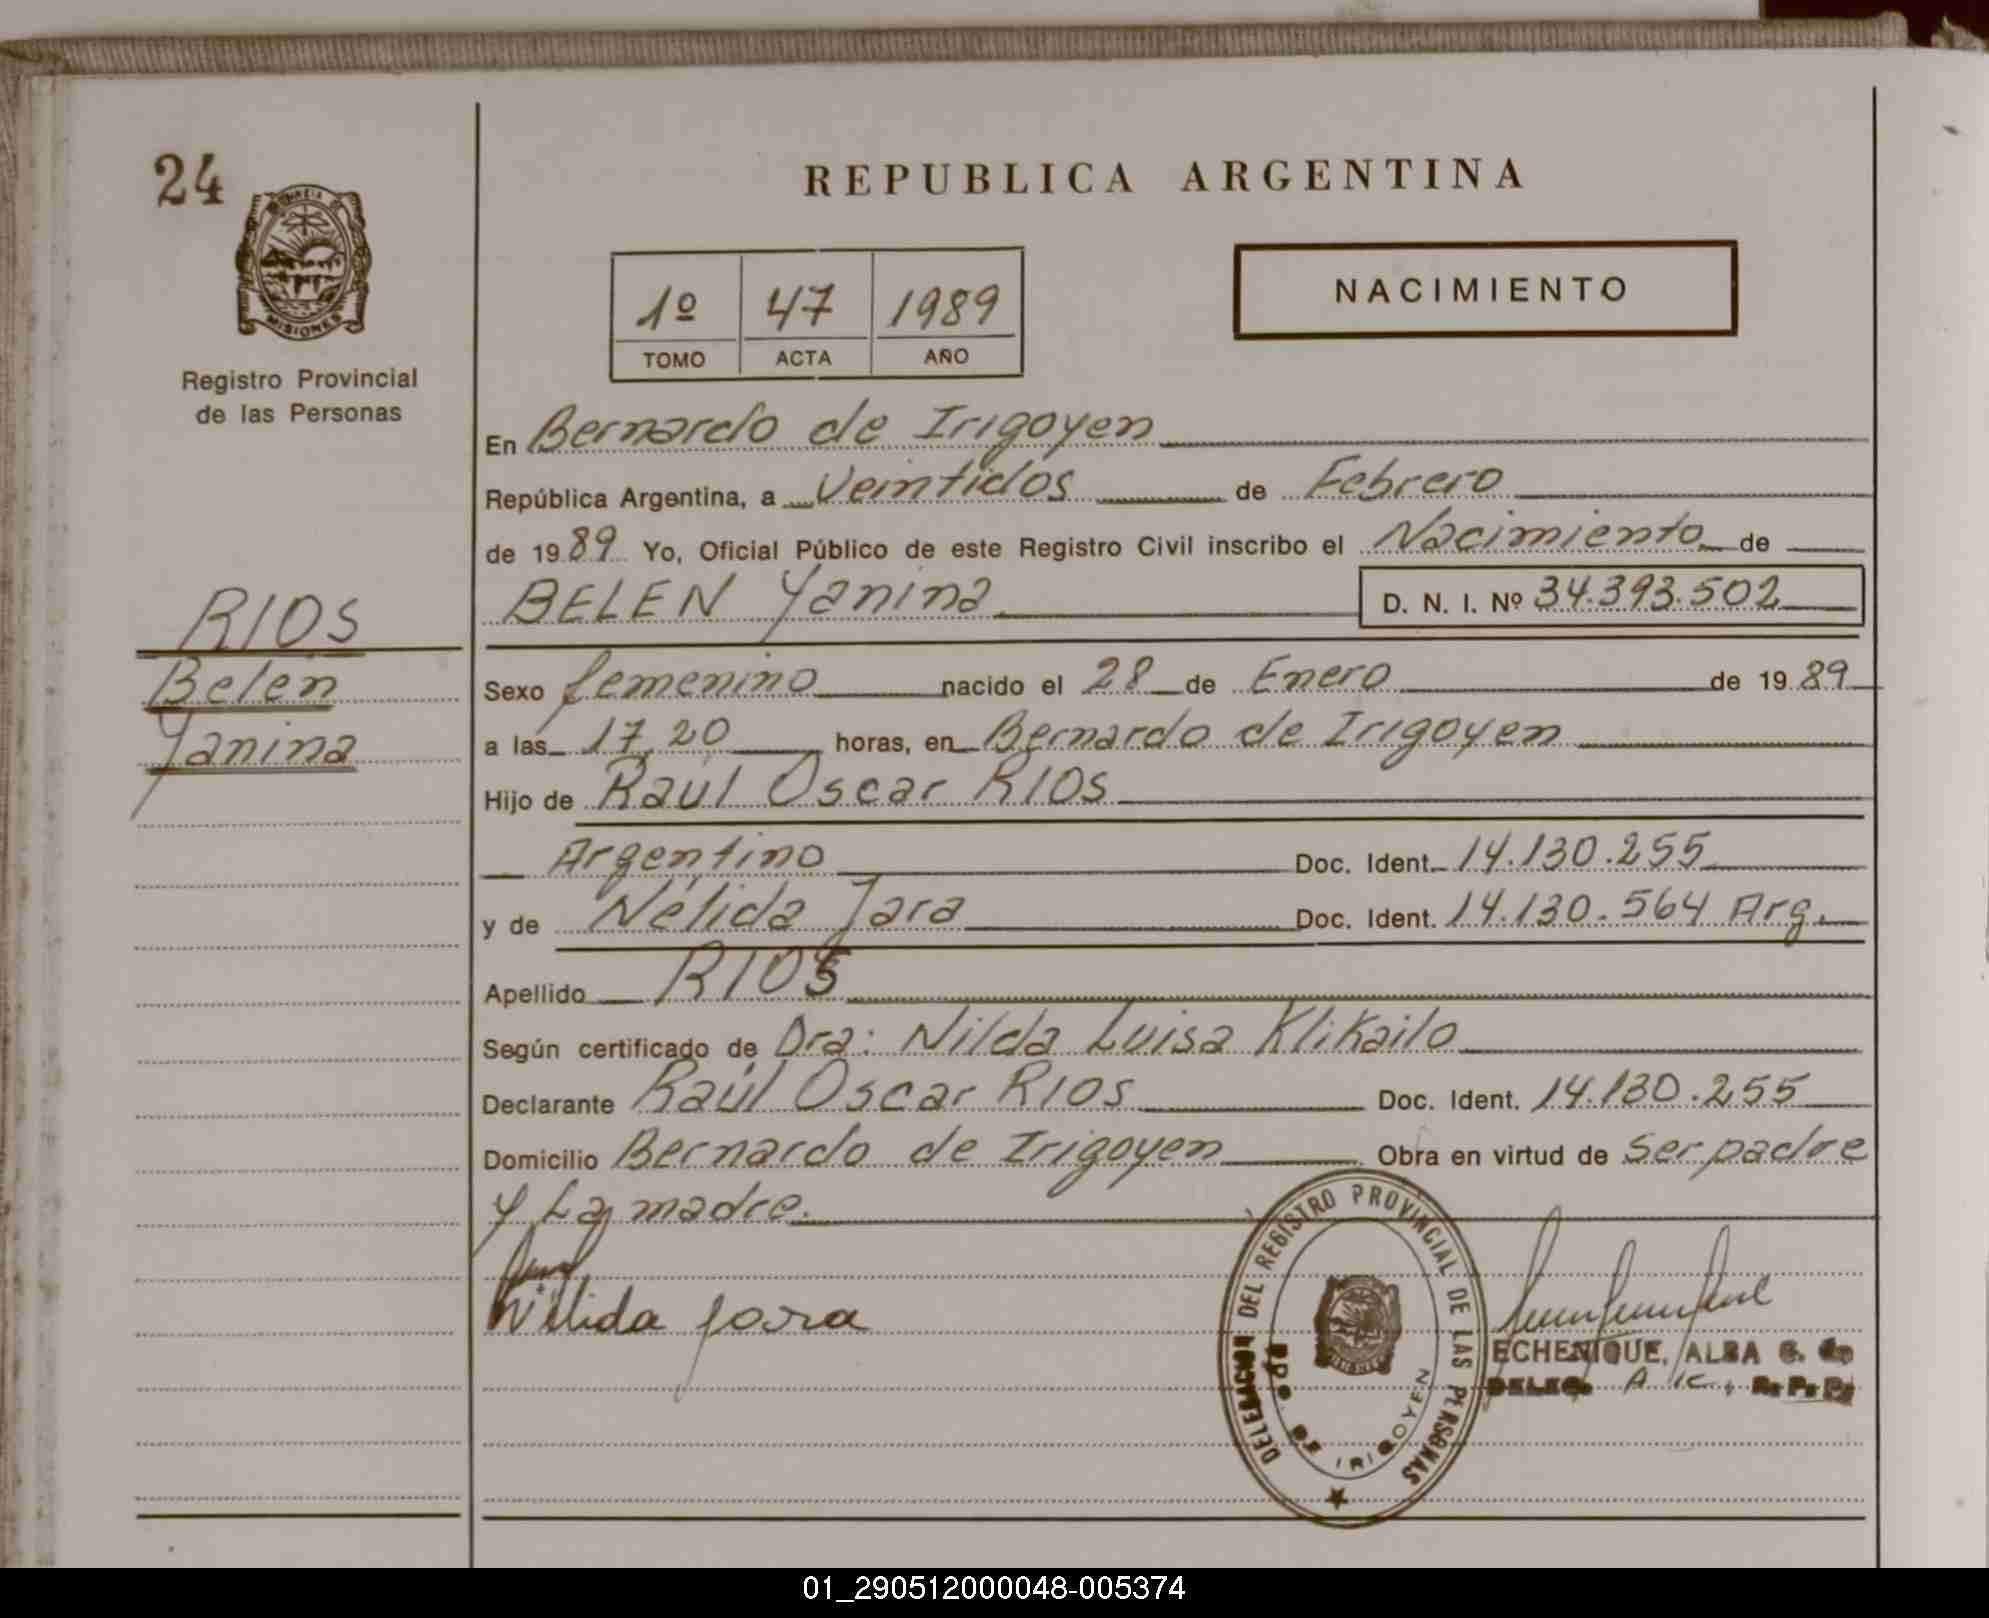 24
MISIONES
Registro Provincial
de las Personas
RIOS
Belén
Yanina
REPUBLICA ARGENTINA
1º 47 1989
TOMO ACTA AÑO
NACIMIENTO
En Bernardo de Irigoyen
República Argentina, a Veintidos de Febrero
de 1989 Yo, Oficial Público de este Registro Civil inscribo el Nacimiento de
BELEN Yanina D. N. I. Nº 34.393.502
Sexo femenino nacido el 28 de Enero de 1989
a las 17,20 horas, en Bernardo de Irigoyen
Hijo de Raúl Oscar RIOS
Argentino Doc. Ident. 14.130.255
y de Nélida Jara Doc. Ident. 14.130.564 Arg.
Apellido RIOS
Según certificado de Dra: Nilda Luisa Klikailo
Declarante Raúl Oscar RIOS Doc. Ident. 14.130.255
Domicilio Bernardo de Irigoyen Obra en virtud de ser padre
y La madre.
Nélida Jara
DELEGACION DEL REGISTRO PROVINCIAL DE LAS PERSONAS
BDO. DE IRIGOYEN
ECHENIQUE, ALBA G. de
DELEG. R. P. P.
01_290512000048-005374